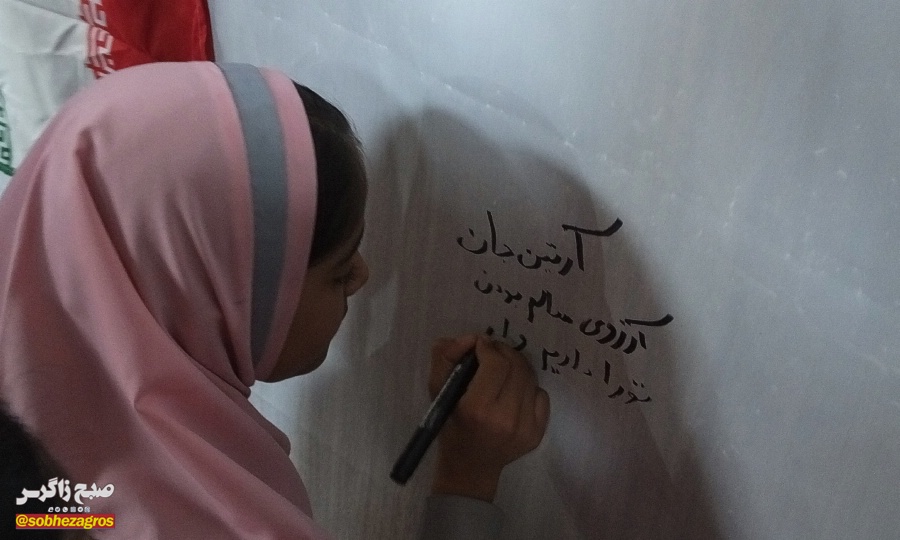 آرتین جان
آرزوی سالم بودن
تو را داریم
صبح زاگرس
@sobhezagros